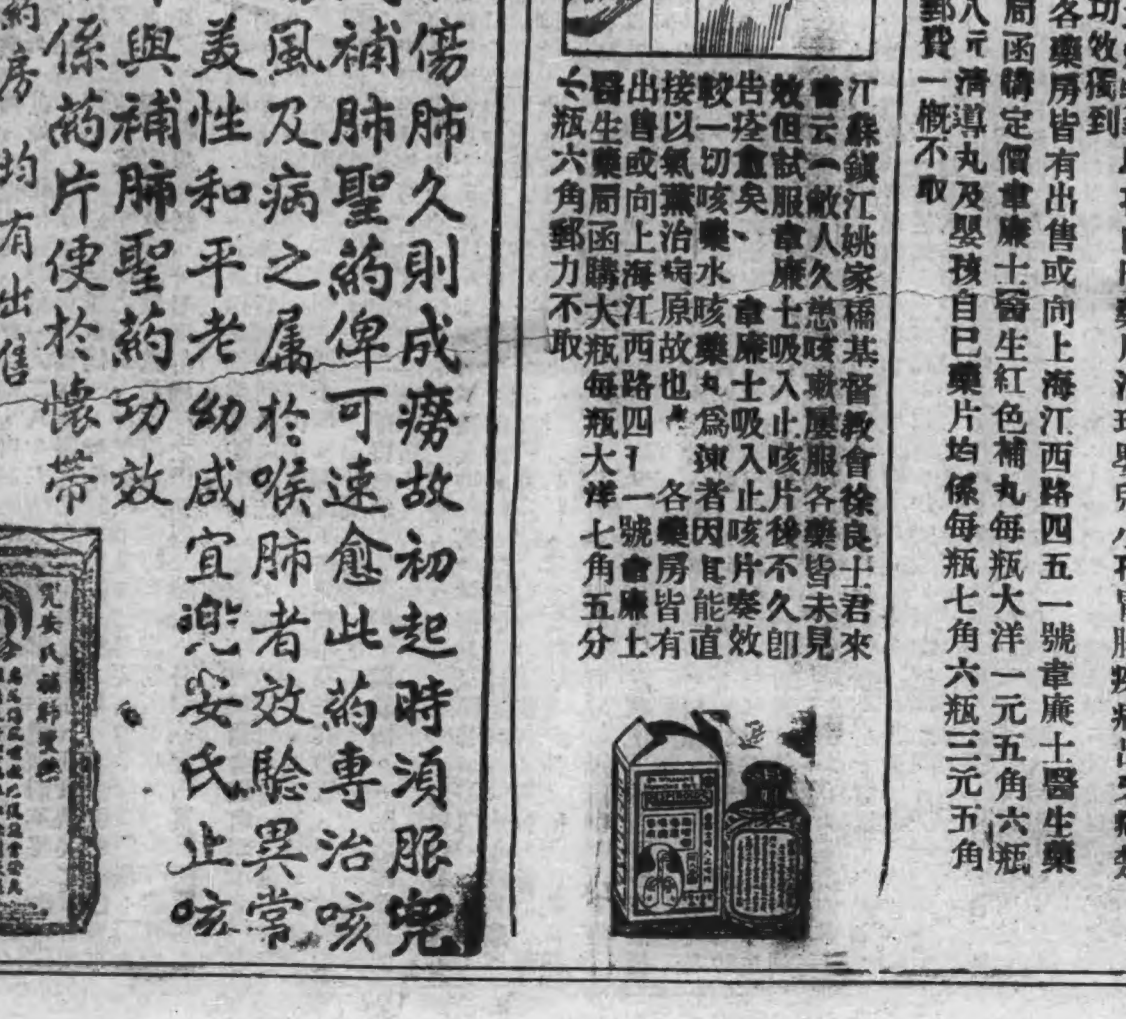 功效獨到
各藥房皆有出售或向上海江西路四五一號韋廉士醫生藥
局函購定價韋廉士醫生紅色補丸每瓶大洋一元五角六瓶
八元清導丸及嬰孩自己藥片均係每瓶七角六瓶三元五角
郵費一概不取
江蘇鎮江姚家橋基督教會徐良士君來
書云一敝人久患咳嗽屢服各藥皆未見
效但試服韋廉士吸入止咳片後不久卽
告痊愈矣、 韋廉士吸入止咳片奏效
較一切咳藥水咳藥丸爲速者因其能直
接以氣薰治病原故也 各藥房皆有
出售或向上海江西路四 一號韋廉士
醫生藥局函購大瓶每瓶大洋七角五分
瓶六角郵力不取
傷肺久則成癆故初起時須服兜
補肺聖药俾可速愈此药專治咳
風及病之属於喉肺者效驗異常
美性和平老幼咸宜兜安氏止咳
與補肺聖药功效
係药片便於懷带
药房 均有出售
兜安氏補肺聖藥